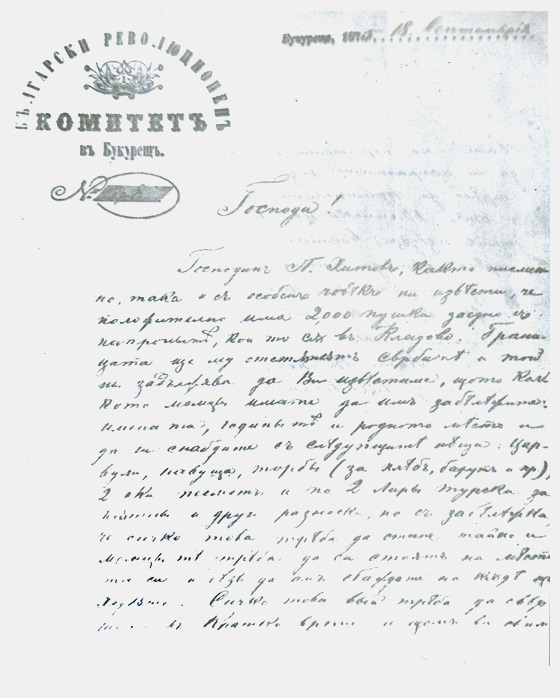 БЪЛГАРСКИ РЕВОЛЮЦИОНЕН
КОМИТЕТЪ
въ Букурещъ.
Букурещъ, 187 18 Септемврий
№
Господа!
Господинъ П. Хитовъ, както писмен-
но, така и съ особенъ човѣкъ ни извѣсти, че
положително има 2,000 пушки заедно съ
патронитѣ, кои то сѫ въ Кладово. Грани-
цата ще му отстѫпятъ Сърбитѣ и той
ни задължава да Ви извѣстиме, щото кол-
кото момци имате да имъ забѣлѣжите
имената, годинитѣ и родното мѣсто и
да ги снабдите съ слѣдующитѣ нѣща: Цар-
вули, навуща, торбы (за хлѣбъ, барутъ и пр),
2 оки пексметъ и по 2 Лиры турски за
и други разноски, но съ забѣлѣжка
че сичко това трѣба да стане тайно и
момцитѣ трѣба да си стоятъ на мѣста-
та си и да имъ обадите на кѫдѣ ще
Сичко това вый трѣба да свър-
въ кратко време и щомъ ви